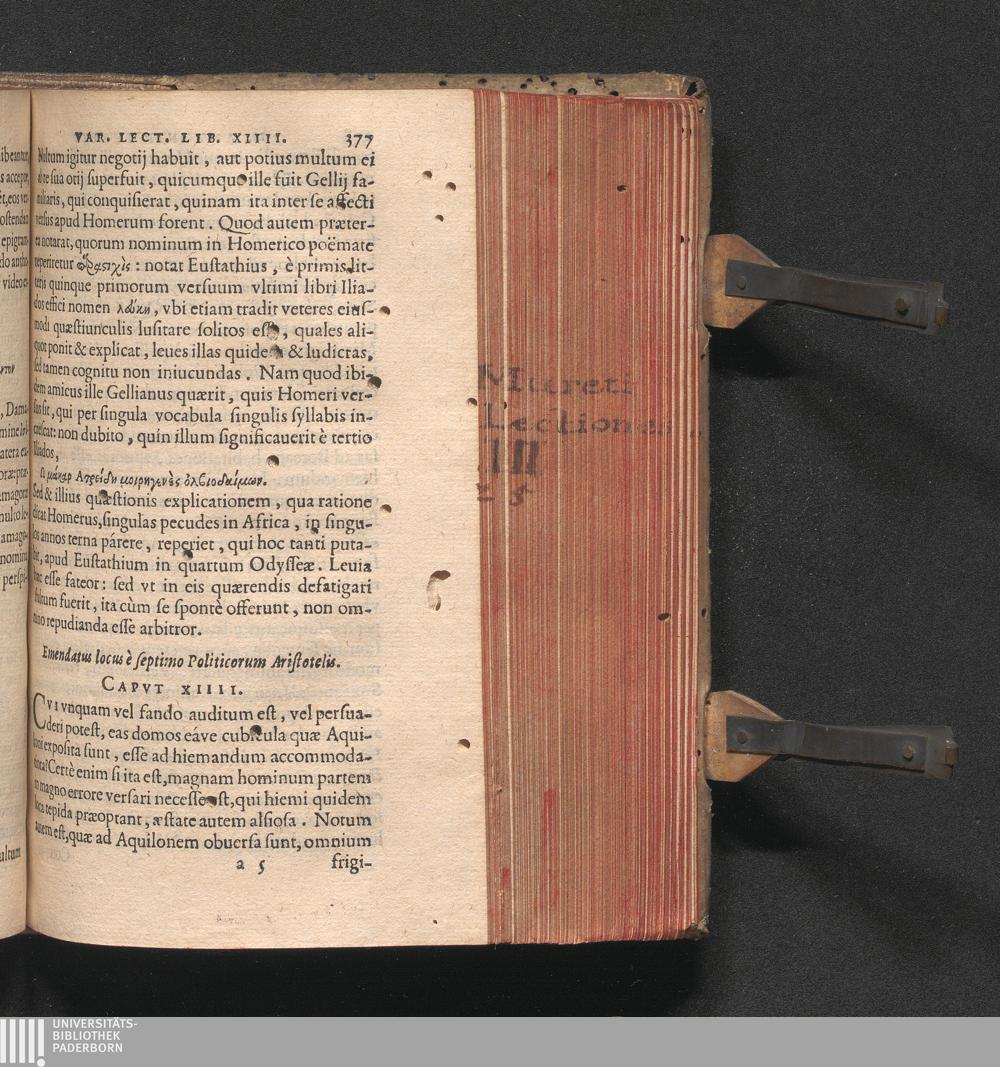 VAR. LECT. LIB. XIIII. 377
Multum igitur negotij habuit, aut potius multum ei
sua otij superfuit, quicumque ille fuit Gellij fa-
miliaris, qui conquisierat, quinam ita inter se affecti
versus apud Homerum forent. Quod autem præter-
ea notarat, quorum nominum in Homerico poëmate
reperiretur : notat Eustathius, è primis lit-
teris quinque primorum versuum vltimi libri Ilia-
dos effici nomen λδύκη, vbi etiam tradit veteres eius-
modi quæstiunculis lusitare solitos esse, quales ali-
quot ponit & explicat, leues illas quidem & ludicras,
sed tamen cognitu non iniucundas. Nam quod ibi-
dem amicus ille Gellianus quærit, quis Homeri ver-
sus sit, qui per singula vocabula singulis syllabis in-
crescat: non dubito, quin illum significauerit è tertio
Iliados,
Ω μάκαρ Ατρείδη μοιρηγενὲς ὀλβιοδαίμων.
Sed & illius quæstionis explicationem, qua ratione
dicat Homerus, singulas pecudes in Africa, in singu-
los annos terna párere, reperiet, qui hoc tanti puta-
bit, apud Eustathium in quartum Odysseæ. Leuia
hæc esse fateor: sed vt in eis quærendis defatigari
stultum fuerit, ita cùm se spontè offerunt, non om-
nino repudianda esse arbitror.
Emendatus locus è septimo Politicorum Aristotelis.
CAPVT XIIII.
CVI vnquam vel fando auditum est, vel persua-
deri potest, eas domos eáve cubicula quæ Aqui-
loni exposita sunt, esse ad hiemandum accommoda-
tiora? Certè enim si ita est, magnam hominum partem
in magno errore versari necesse est, qui hiemi quidem
loca tepida præoptant, æstate autem alsiosa. Notum
autem est, quæ ad Aquilonem obuersa sunt, omnium
a 5 frigi-
Mureti
Lectiones
III
5
UNIVERSITÄTS-
BIBLIOTHEK
PADERBORN